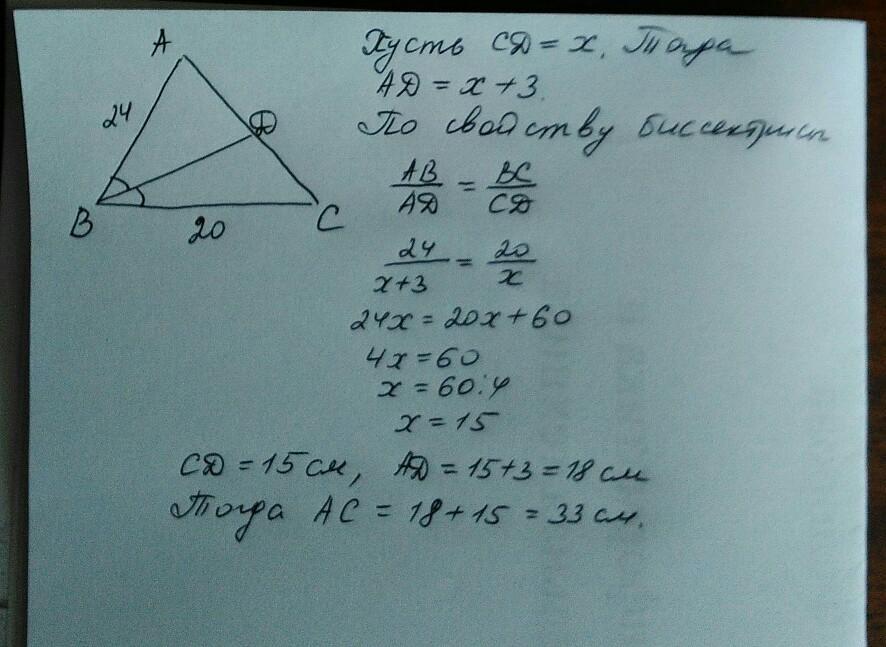 A
24
D
B
20
C
Пусть CD = x. Тогда
AD = x + 3.
По свойству биссектрисы
AB/AD = BC/CD
24/x+3 = 20/x
24x = 20x + 60
4x = 60
x = 60:4
x = 15
CD = 15 см, AD = 15+3 = 18 см
Тогда AC = 18 + 15 = 33 см.